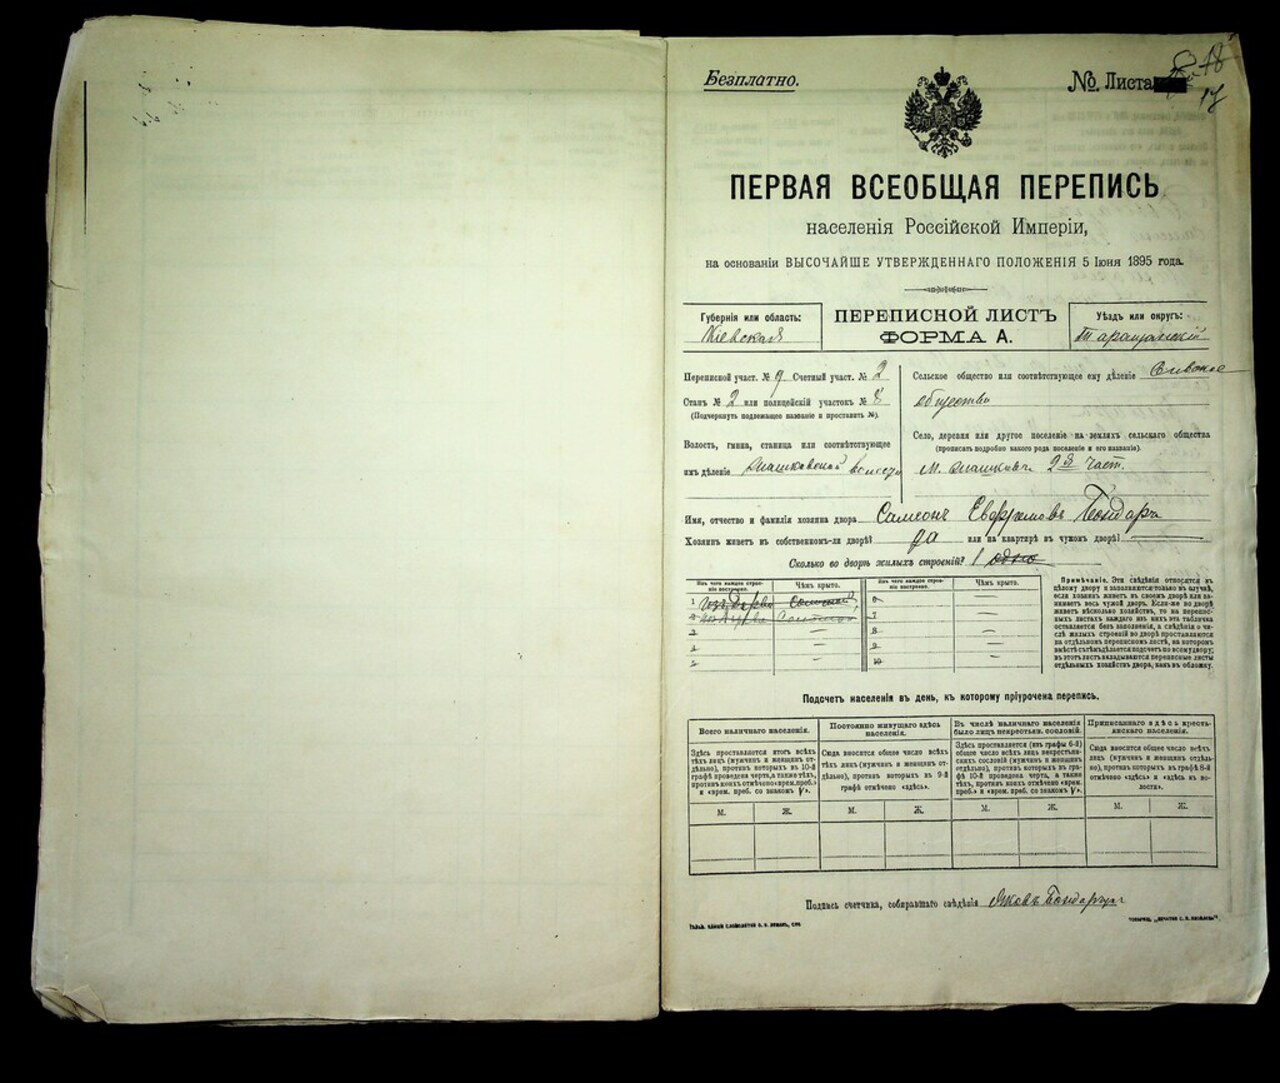 Безплатно.
№ Листа
18
17
ПЕРВАЯ ВСЕОБЩАЯ ПЕРЕПИСЬ
населенія Россійской Имперіи,
на основаніи ВЫСОЧАЙШЕ УТВЕРЖДЕННАГО ПОЛОЖЕНІЯ 5 Іюня 1895 года.
Губернія или область:
Кіевская
ПЕРЕПИСНОЙ ЛИСТЪ
ФОРМА А.
Уѣздъ или округъ:
Таращанскій
Переписной участ. № 9 Счетный участ. № 2
Станъ № 2 или полицейскій участокъ № 8
(Подчеркнуть надлежащее названіе и проставить №).
Волость, гмина, станица или соотвѣтствующее
имъ дѣленіе
Сельское общество или соотвѣтствующее ему дѣленіе
общество
Село, деревня или другое поселеніе на земляхъ сельскаго общества
(прописать подробно какого рода поселеніе и его названіе).
2я част.
Имя, отчество и фамилія хозяина двора Самсонъ Бондарь
Хозяинъ живетъ въ собственномъ-ли дворѣ? да или на квартирѣ въ чужомъ дворѣ?
Сколько во дворѣ жилыхъ строеній? 1 одно
Изъ чего каждое строеніе построено.
Чѣмъ крыто.
Изъ чего каждое строеніе построено.
Чѣмъ крыто.
1 изъ дерева соломой
2 изъ дерева соломой
3
4
5
6
7
8
9
10
Примѣчаніе. Эти свѣдѣнія относятся къ
цѣлому двору и заполняются только въ случаѣ,
если хозяинъ живетъ въ своемъ дворѣ или занимаетъ
весь чужой дворъ. Если-же во дворѣ
живетъ нѣсколько хозяйствъ, то на переписныхъ
листахъ каждаго изъ нихъ эта табличка
оставляется безъ заполненія, а свѣдѣнія о числѣ
жилыхъ строеній во дворѣ проставляются
на отдѣльномъ переписномъ листѣ, на которомъ
вмѣстѣ съ тѣмъ дѣлается подсчетъ по всему двору;
въ этотъ листъ вкладываются переписные листы
отдѣльныхъ хозяйствъ двора, какъ въ обложку.
Подсчетъ населенія въ день, къ которому пріурочена перепись.
Всего наличнаго населенія.
Постоянно живущаго здѣсь населенія.
Въ числѣ наличнаго населенія было лицъ некрестьян. сословій.
Приписаннаго здѣсь крестьянскаго населенія.
Здѣсь проставляется итогъ всѣхъ
тѣхъ лицъ (мужчинъ и женщинъ отдѣльно),
противъ которыхъ въ 10-й
графѣ проведена черта, а также тѣхъ,
противъ коихъ отмѣчено «врем. преб.»
и «врем. преб. со знакомъ V».
Сюда вносится общее число всѣхъ
тѣхъ лицъ (мужчинъ и женщинъ отдѣльно),
противъ которыхъ въ 9-й
графѣ отмѣчено «здѣсь».
Здѣсь проставляется (изъ графы 6-й)
общее число всѣхъ лицъ некрестьянскихъ
сословій (мужчинъ и женщинъ
отдѣльно), противъ которыхъ въ графѣ
10-й проведена черта, а также
тѣхъ, противъ коихъ отмѣчено «врем.
преб.» и «врем. преб. со знакомъ V».
Сюда вносится общее число всѣхъ
лицъ (мужчинъ и женщинъ отдѣльно),
противъ которыхъ въ графѣ 8-й
отмѣчено «здѣсь» и «здѣсь въ волости».
М. Ж. М. Ж. М. Ж. М. Ж.
Подпись счетчика, собиравшаго свѣдѣнія Яковъ